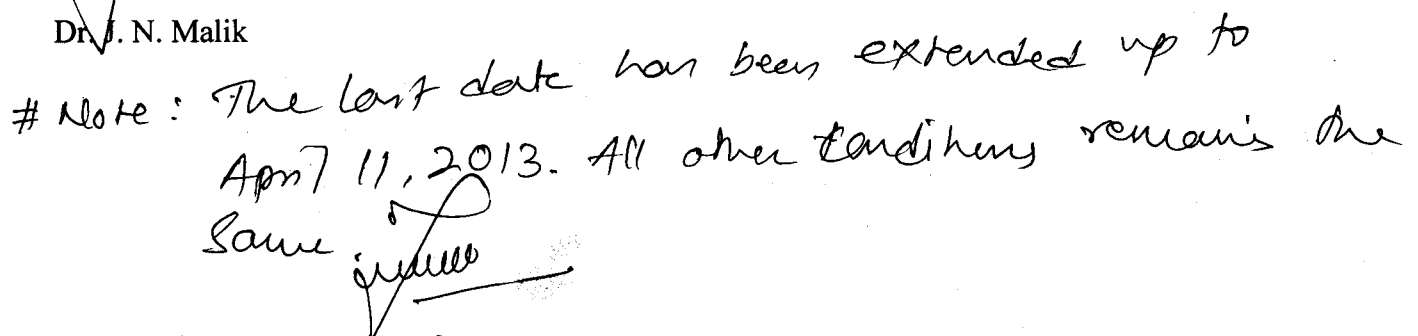 Dr. J. N. Malik
# Note: The last date has been extended up to
April 11, 2013. All other conditions remains the
Same